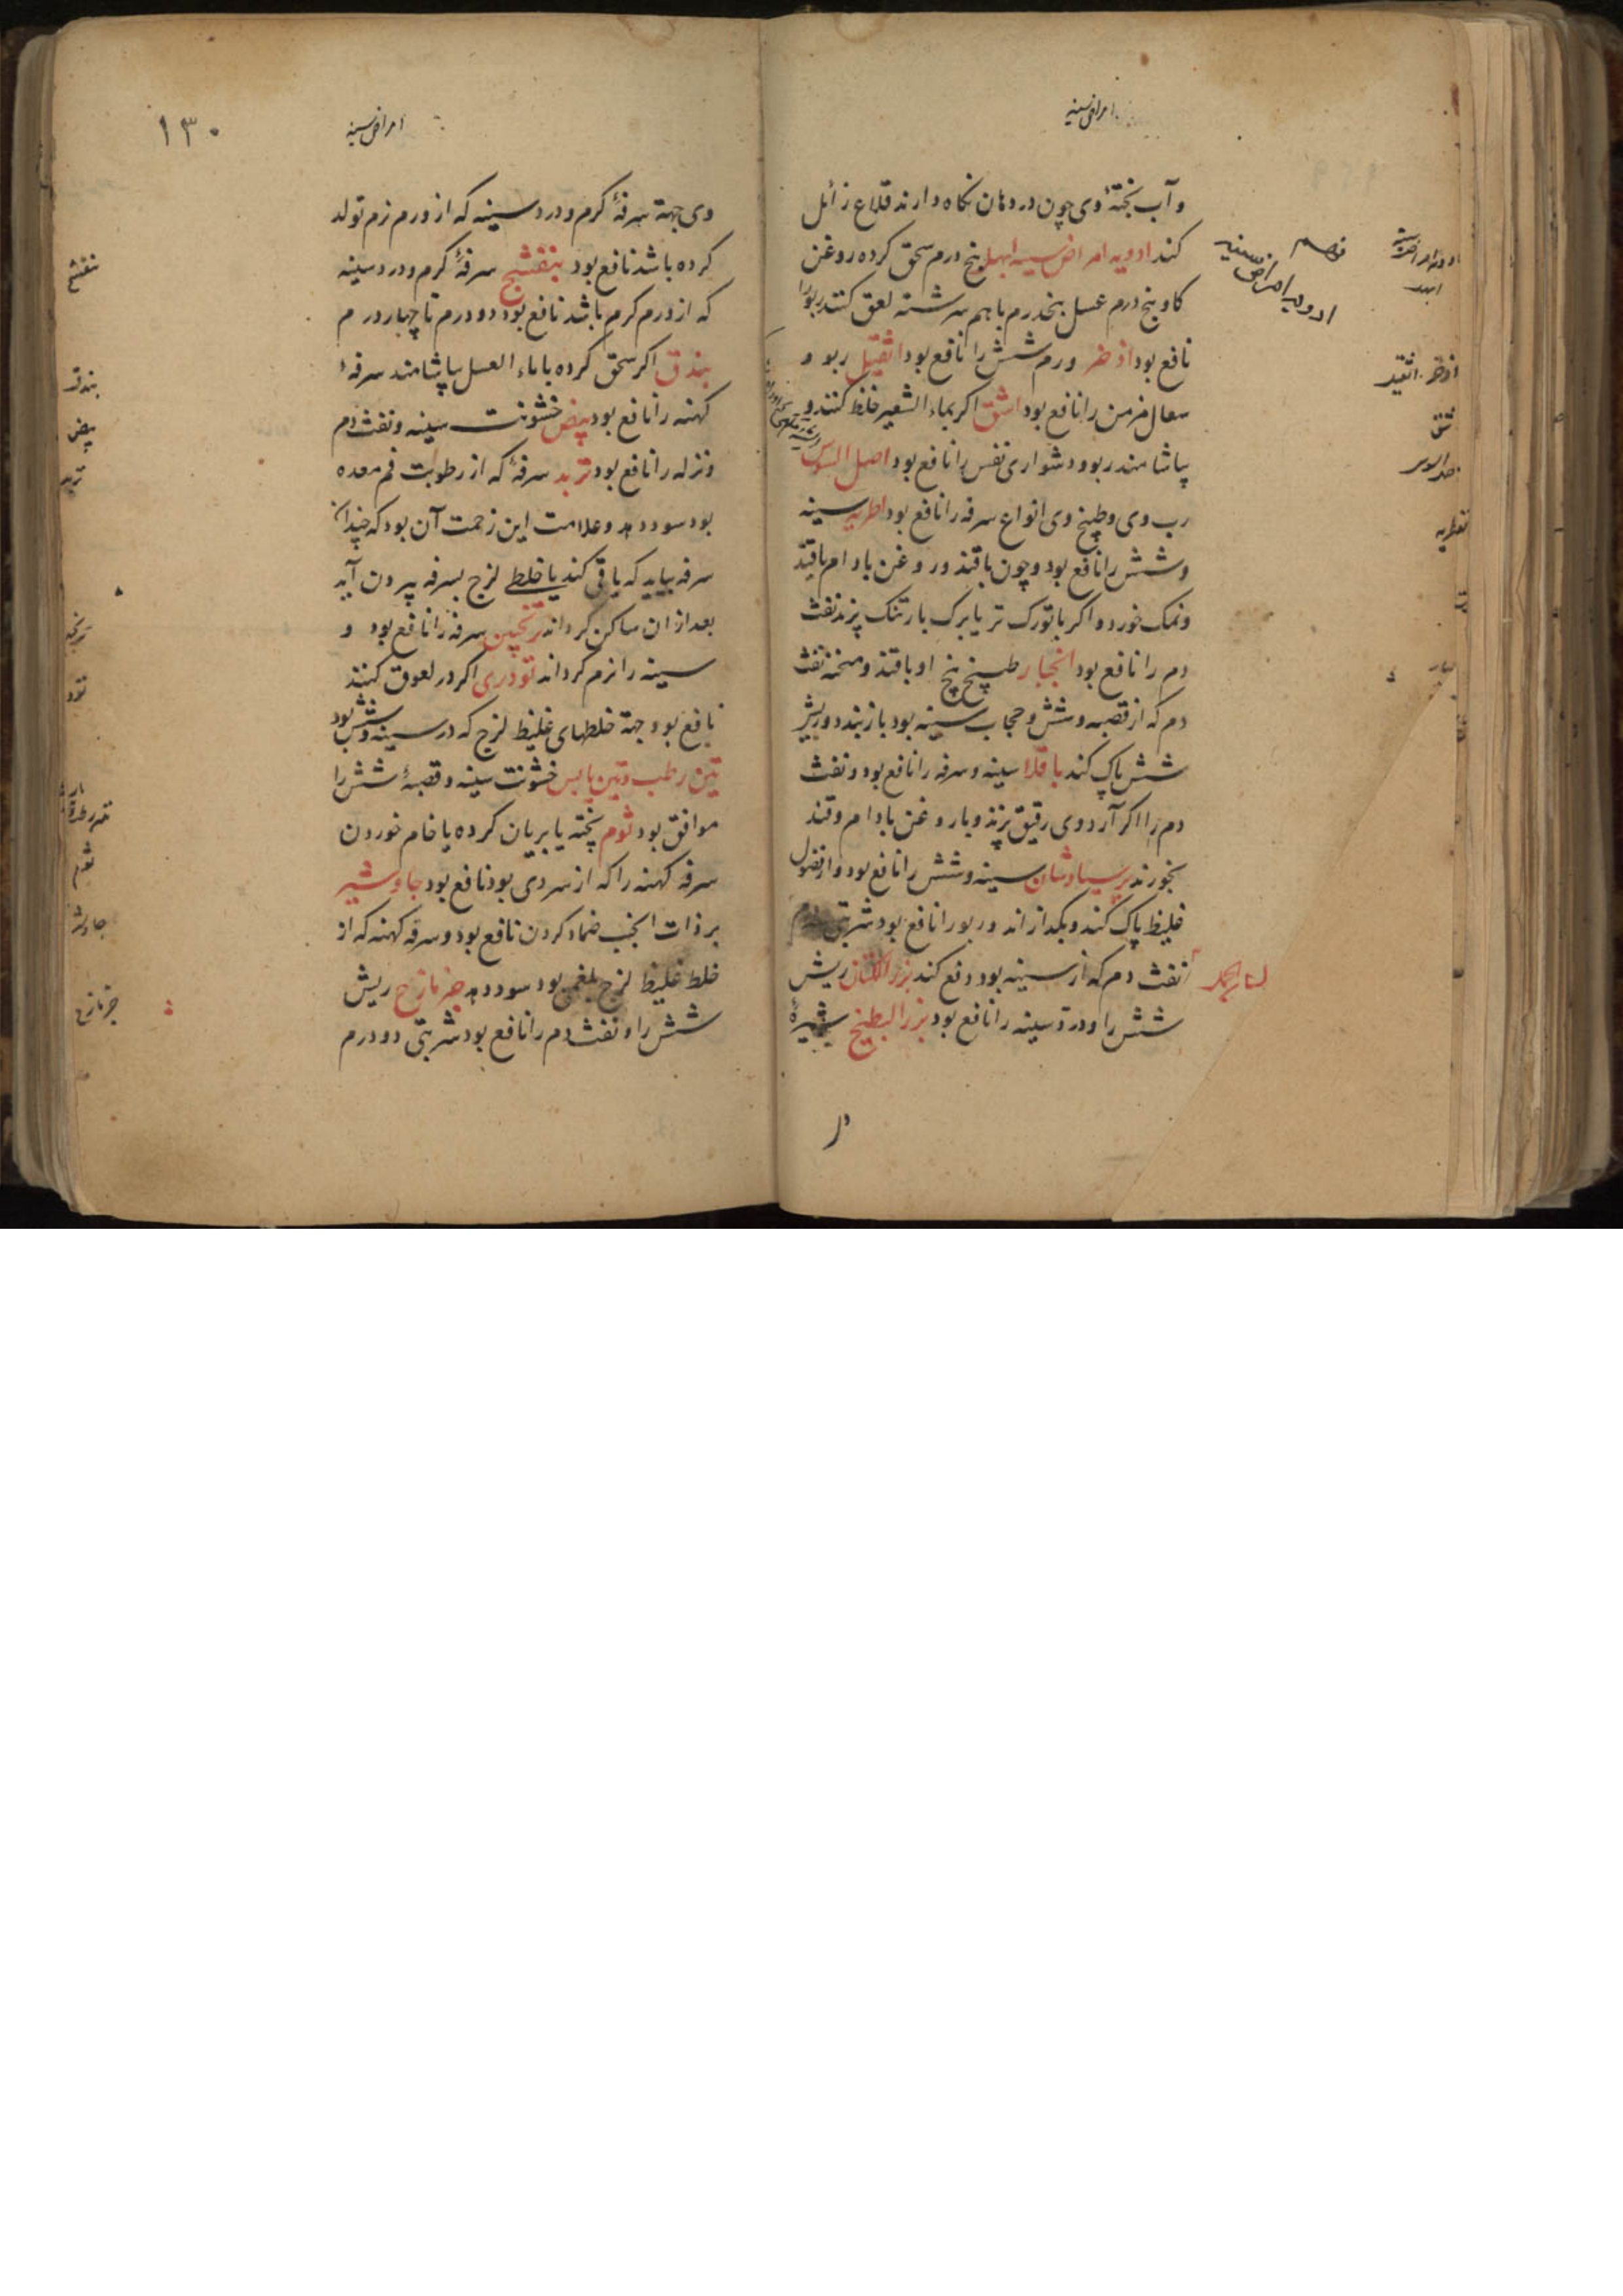 امراض سینه
و آب پختهٔ وی چون در دهان نکاه دارند قلاع زائل
کند ادویه امراض سینه ابهل پنج درم سحق کرده روغن
کاو پنج درم عسل پنجدرم باهم سرشته لعق کنند ربو را
نافع بود اذخر ورم شش را نافع بود اثقیل ربو و
سعال مزمن را نافع بود اشق اکر بماء الشعیر خلط کنند و
بیاشامند ربو و دشواری نفس را نافع بود اصل السوس
رب وی و طبیخ وی انواع سرفه را نافع بود اطریه سینه
و شش را نافع بود و چون با قند و روغن بادام یا قند
و نمک خورد و اکر با تورک تر یا برک بارتنک پزند نفث
دم را نافع بود انجبار طبیخ بیخ او با قند و نفث
دم که از قصبه و شش و حجاب سینه بود باز بندد و ریش
شش پاک کند باقلا سینه و سرفه را نافع بود و نفث
دم را اکر آرد وی رقیق پزند و با روغن بادام و قند
بخورند پرسیاوشان سینه و شش را نافع بود و از فضول
غلیظ پاک کند و بکدازاند و ربو را نافع بود شربتی
نفث دم که از سینه بود دفع کند بزر الکتان ریش
شش را و درد سینه را نافع بود بزر البطیخ شیرهٔ
ادویه امراض سینه
۱۳۰
امراض سینه
وی جهة سرفهٔ کرم و درد سینه که از ورم نرم تولد
کرده باشد نافع بود بنفشج سرفهٔ کرم و درد سینه
که از ورم کرم باشد نافع بود دو درم تا چهار درم
بندق اکر سحق کرده با ماء العسل بیاشامند سرفهٔ
کهنه را نافع بود بیض خشونت سینه و نفث دم
و نزله را نافع بود تربد سرفهٔ که از رطوبت فم معده
بود سود دهد و علامت این زحمت آن بود که چندان
سرفه بیاید که یا قی کند یا خلطی لزج بسرفه بیرون آید
بعد از ان ساکن کرداند ترنجبین سرفه را نافع بود و
سینه را نرم کرداند تودری اکر در لعوق کنند
نافع بود جهة خلطهای غلیظ لزج که در سینه و شش بود
تین رطب و تین یابس خشونت سینه و قصبهٔ شش را
موافق بود ثوم پخته یا بریان کرده یا خام خوردن
سرفه کهنه را که از سردی بود نافع بود جاوشیر
بر ذات الجنب ضماد کردن نافع بود و سرفه کهنه که از
خلط غلیظ لزج بلغمی بود سود دهد جزمازج ریش
شش را و نفث دم را نافع بود شربتی دو درم
بنفشج
بندق
بیض
تربد
ثوم
جزمازج